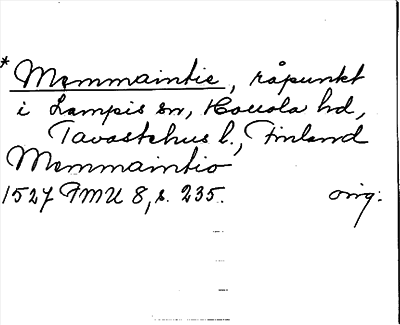 * Mommaintie, råpunkt
i Lampis sn, Hollola hd,
Tavastehus l., Finland
Mommaintio
1527 FMU 8, s. 235. orig.